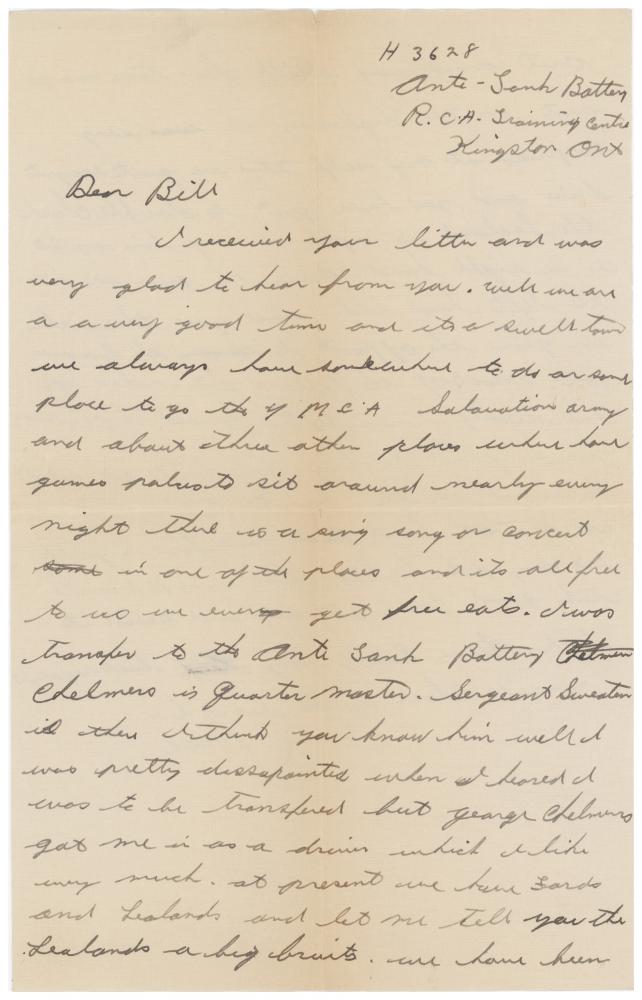 H 3628
Anti-Tank Battery
R.C.A. Training Centre
Kingston Ont
Dear Bill
I received your letter and was
very glad to hear from you. well we are
a a very good time and its a swell town
we always have somewhere to do or some
place to go the Y M C A Salavation army
and about three other places where have
games to sit around nearly every
night there is a sing song or concert
some in one of the places and its all free
to us we even get free eats. I was
transfer to the Anti Tank Battery Chelmers
Chelmers is Quarter master. Sergeant Sweaten
is there I think you know him well I
was pretty dissapointed when I heared I
was to be transfered but george Chelmers
got me in as a driver which I like
very much. at present we have Fords
and Lealands and let me tell you the
Lealands a big bruits. we have been